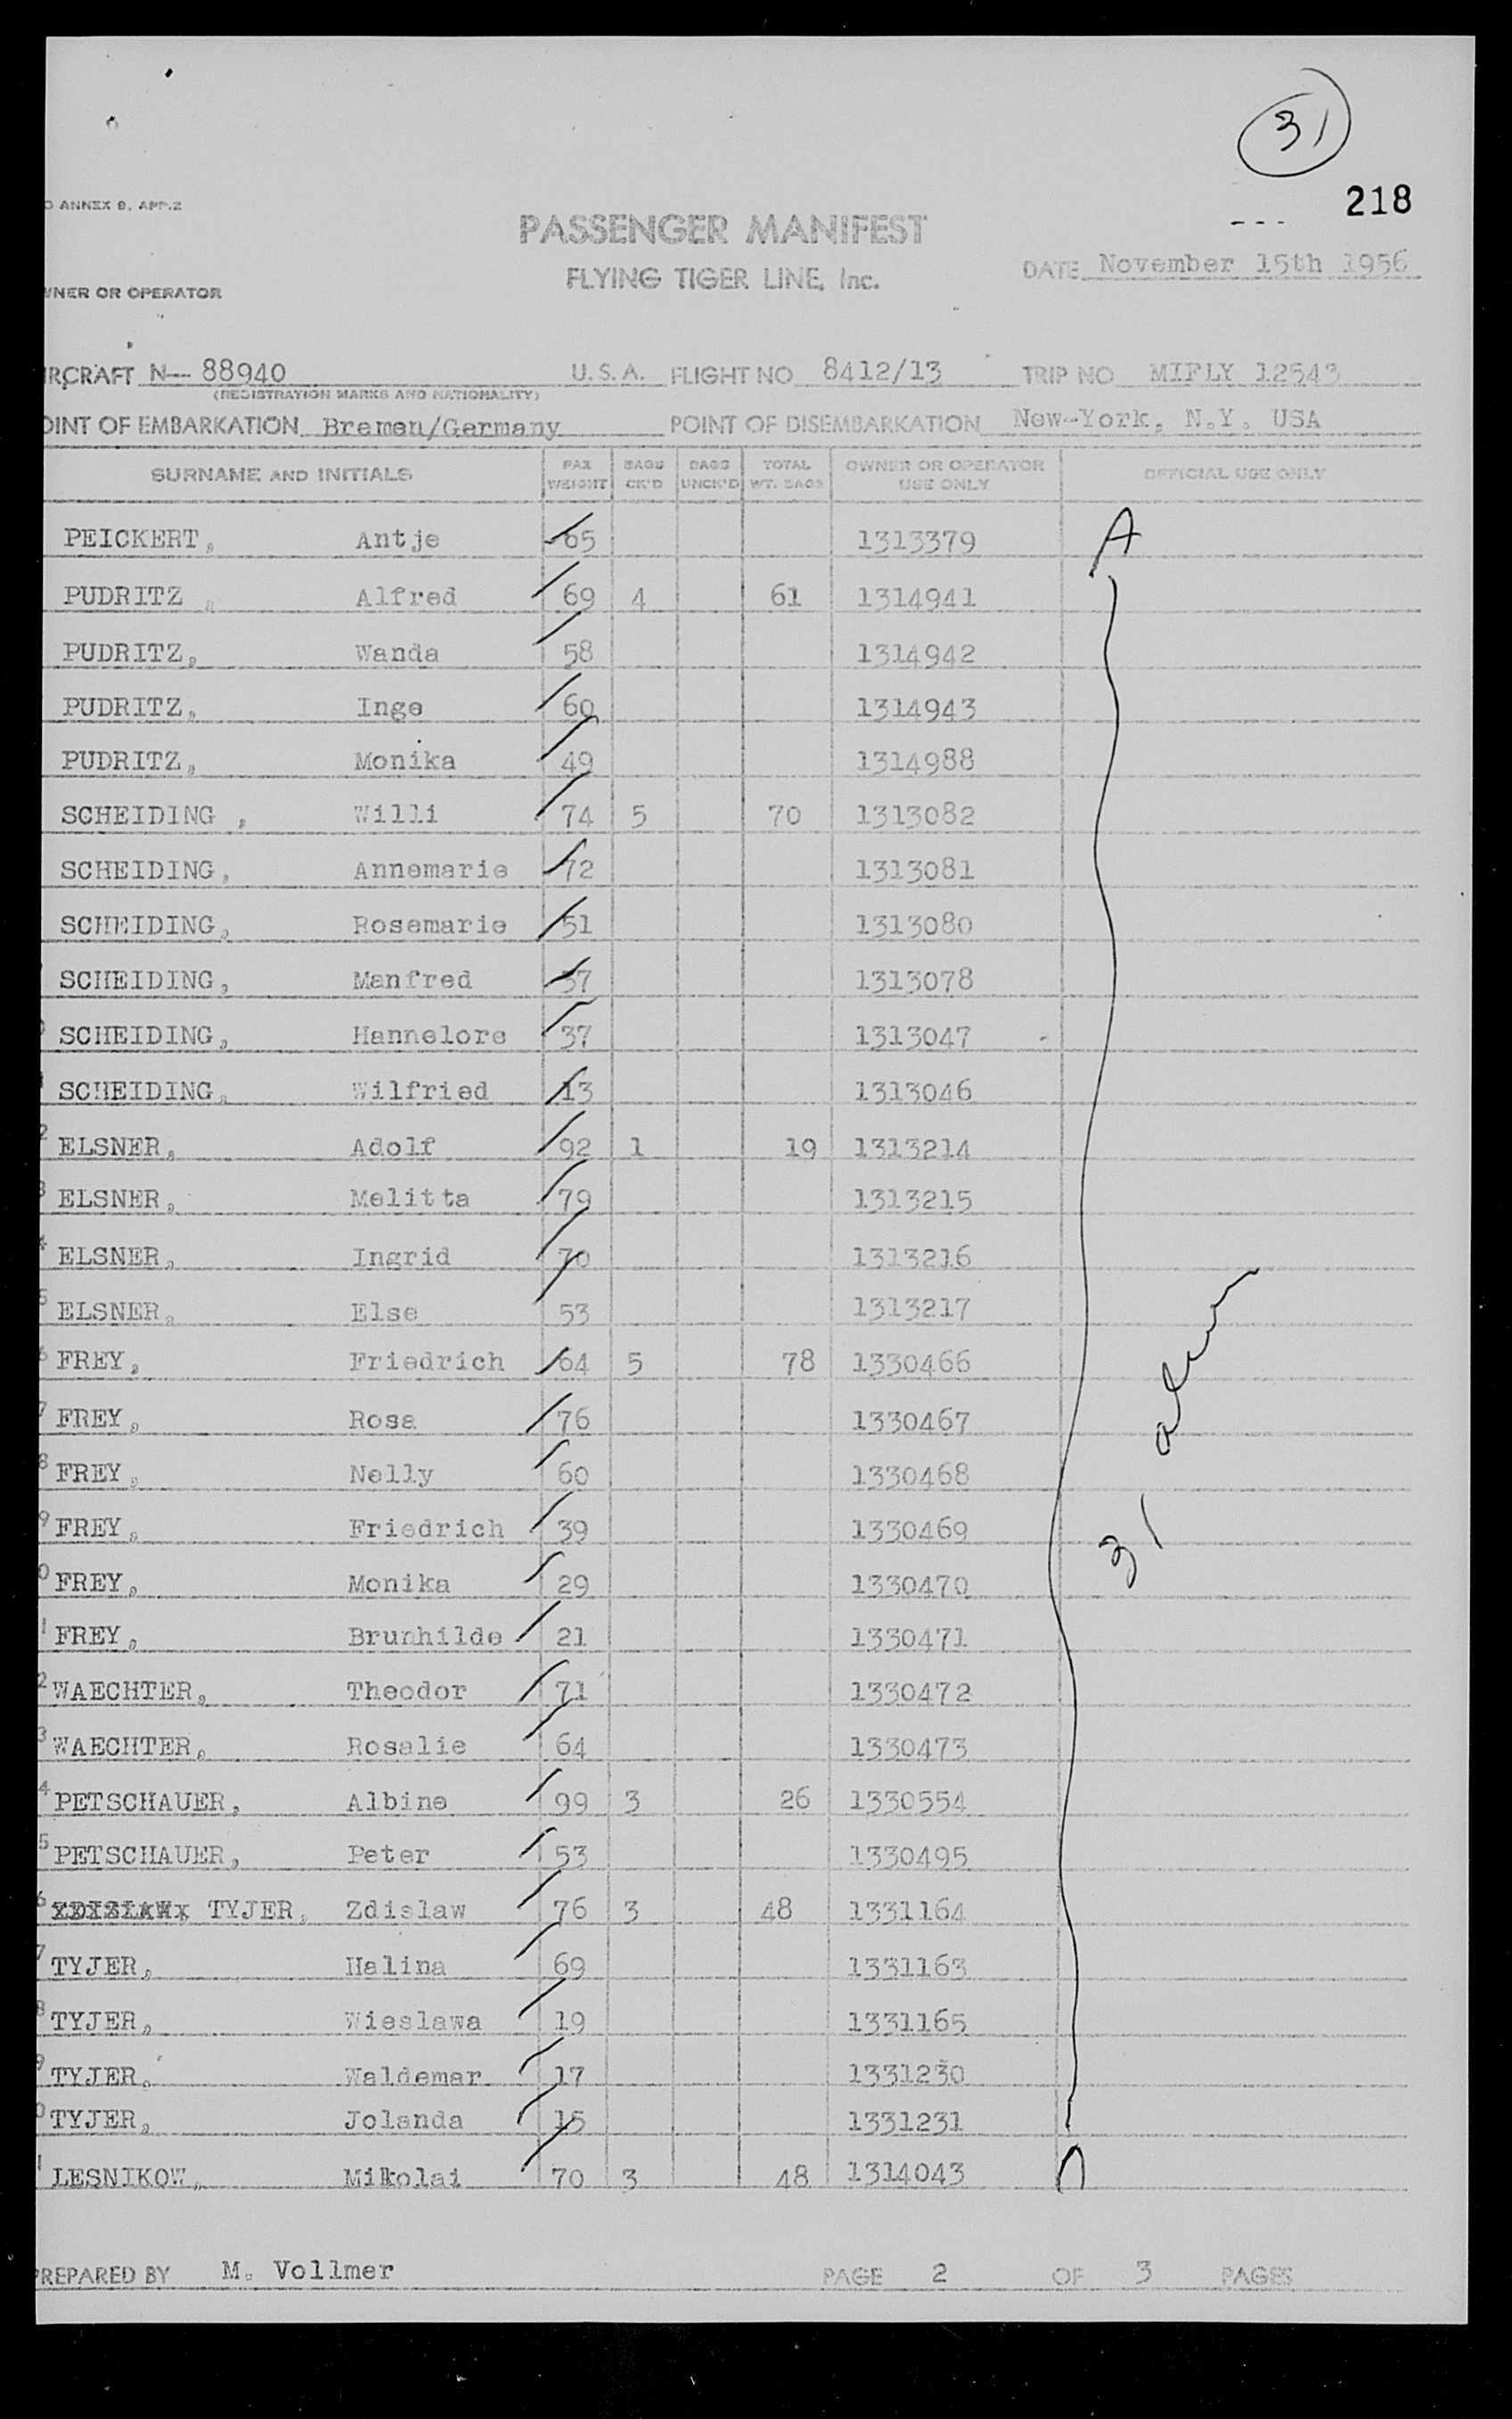 31
218
O ANNEX 9, APP.2
PASSENGER MANIFEST
FLYING TIGER LINE, Inc.
DATE November 15th 1956
WNER OR OPERATOR
IRCRAFT N— 88940 U.S.A. FLIGHT NO 8412/13 TRIP NO MIFLY 12543
(REGISTRATION MARKS AND NATIONALITY)
OINT OF EMBARKATION Bremen/Germany POINT OF DISEMBARKATION New-York, N.Y. USA
SURNAME AND INITIALS PAX WEIGHT BAGS CK'D BAGS UNCK'D TOTAL WT. BAGS OWNER OR OPERATOR USE ONLY OFFICIAL USE ONLY
PEICKERT, Antje 65 1313379 A
PUDRITZ , Alfred 69 4 61 1314941
PUDRITZ, Wanda 58 1314942
PUDRITZ, Inge 60 1314943
PUDRITZ, Monika 49 1314988
SCHEIDING , Willi 74 5 70 1313082
SCHEIDING, Annemarie 72 1313081
SCHEIDING, Rosemarie 51 1313080
SCHEIDING, Manfred 37 1313078
0 SCHEIDING, Hannelore 37 1313047
1 SCHEIDING, Wilfried 13 1313046
2 ELSNER, Adolf 92 1 19 1313214
3 ELSNER, Melitta 79 1313215
4 ELSNER, Ingrid 70 1313216
5 ELSNER, Else 53 1313217
6 FREY, Friedrich 64 5 78 1330466
7 FREY, Rosa 76 1330467
8 FREY, Nelly 60 1330468
9 FREY, Friedrich 39 1330469
0 FREY, Monika 29 1330470
1 FREY, Brunhilde 21 1330471
2 WAECHTER, Theodor 71 1330472
3 WAECHTER, Rosalie 64 1330473
4 PETSCHAUER, Albine 99 3 26 1330554
5 PETSCHAUER, Peter 53 1330495
6 TYJER, Zdislaw 76 3 48 1331164
7 TYJER, Halina 69 1331163
8 TYJER, Wieslawa 19 1331165
9 TYJER, Waldemar 17 1331230
0 TYJER, Jolanda 15 1331231
1 LESNIKOW, Mikolai 70 3 48 1314043
31 alien
PREPARED BY M. Vollmer PAGE 2 OF 3 PAGES